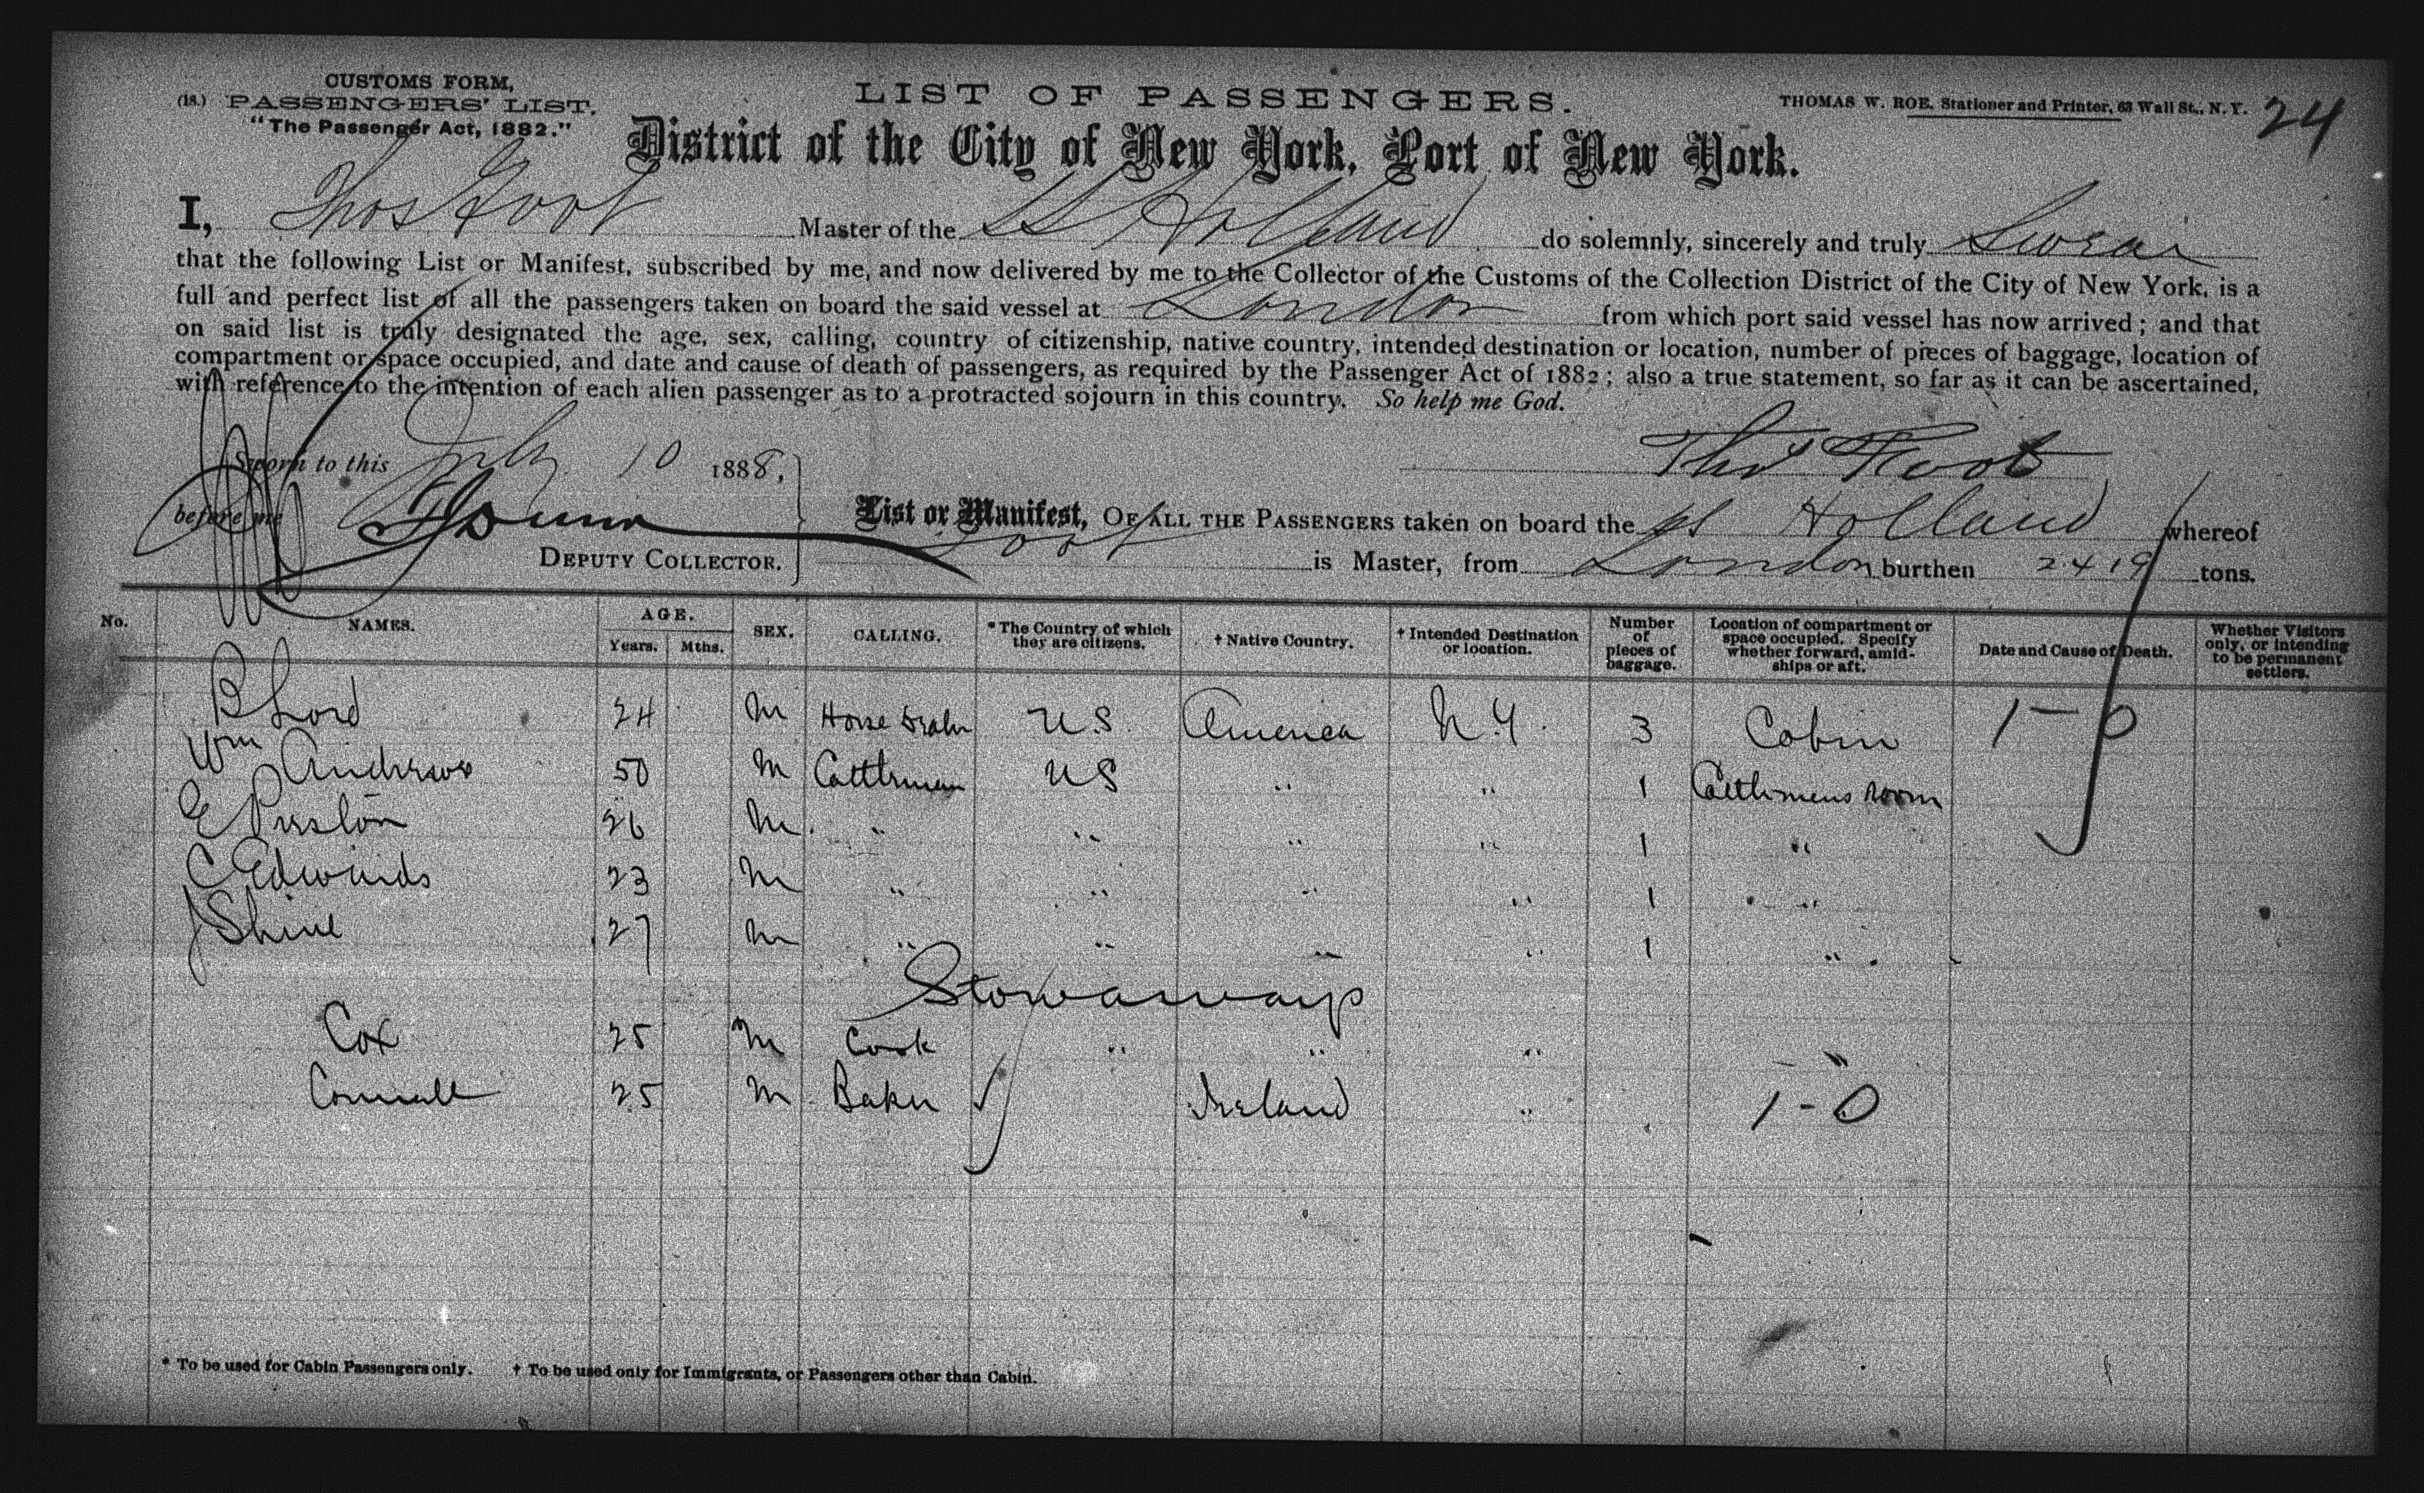 CUSTOMS FORM,
(18.) PASSENGERS' LIST.
"The Passenger Act, 1882."
LIST OF PASSENGERS.
THOMAS W. ROE, Stationer and Printer, 63 Wall St., N. Y.
24
District of the City of New York, Port of New York.
I, Thos Foot Master of the SS Holland do solemnly, sincerely and truly Swear
that the following List or Manifest, subscribed by me, and now delivered by me to the Collector of the Customs of the Collection District of the City of New York, is a
full and perfect list of all the passengers taken on board the said vessel at London from which port said vessel has now arrived; and that
on said list is truly designated the age, sex, calling, country of citizenship, native country, intended destination or location, number of pieces of baggage, location of
compartment or space occupied, and date and cause of death of passengers, as required by the Passenger Act of 1882; also a true statement, so far as it can be ascertained,
with reference to the intention of each alien passenger as to a protracted sojourn in this country. So help me God.
Sworn to this July 10 1888,
Thos Foot
before me
DEPUTY COLLECTOR.
List or Manifest, OF ALL THE PASSENGERS taken on board the SS Holland whereof
Foot is Master, from London burthen 2419 tons.
No. NAMES. AGE. Years. Mths. SEX. CALLING. * The Country of which they are citizens. † Native Country. † Intended Destination or location. Number of pieces of baggage. Location of compartment or space occupied. Specify whether forward, amidships or aft. Date and Cause of Death. Whether Visitors only, or intending to be permanent settlers.
B Lord 24 M Horse Dealer U.S. America N.Y. 3 Cabin 1-0
Wm Andrews 50 M Cattleman US " " 1 Cattlemens room
E Preston 26 M " " " " 1 "
C Edwards 23 M " " " " 1 "
J Shine 27 M " " " " 1 "
Stowaways
Cox 25 M Cook " " " "
25 M Baker Ireland " 1-0
* To be used for Cabin Passengers only. † To be used only for Immigrants, or Passengers other than Cabin.